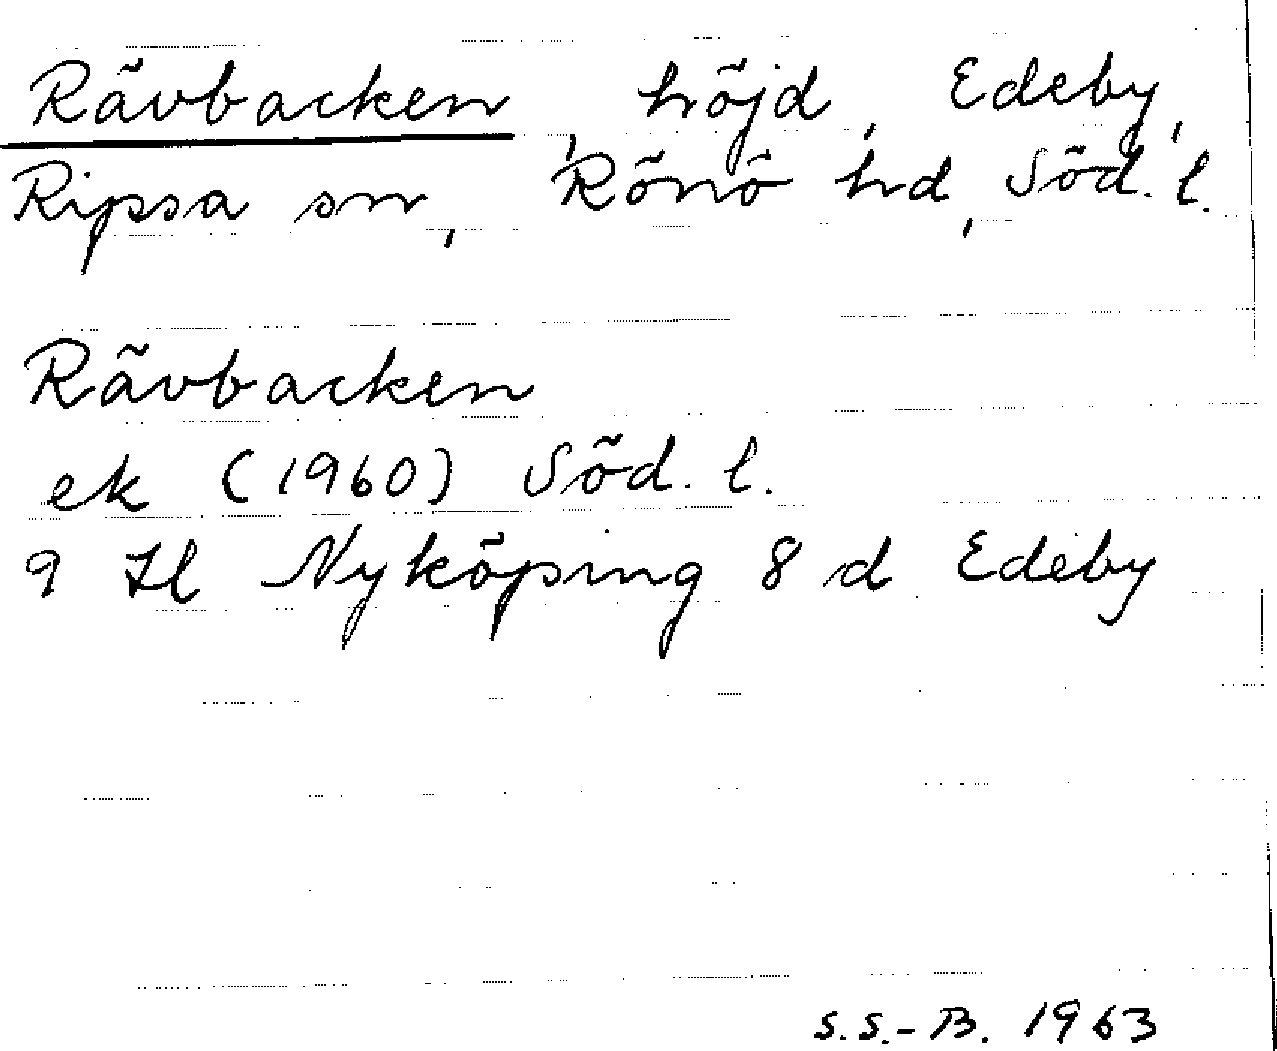 Rävbacken, höjd, Edeby,
Ripsa sn, Rönö hd, Söd. l.
Rävbacken
ek (1960) Söd. l.
9 Hl Nyköping 8 d Edeby
S.S.-B. 1963